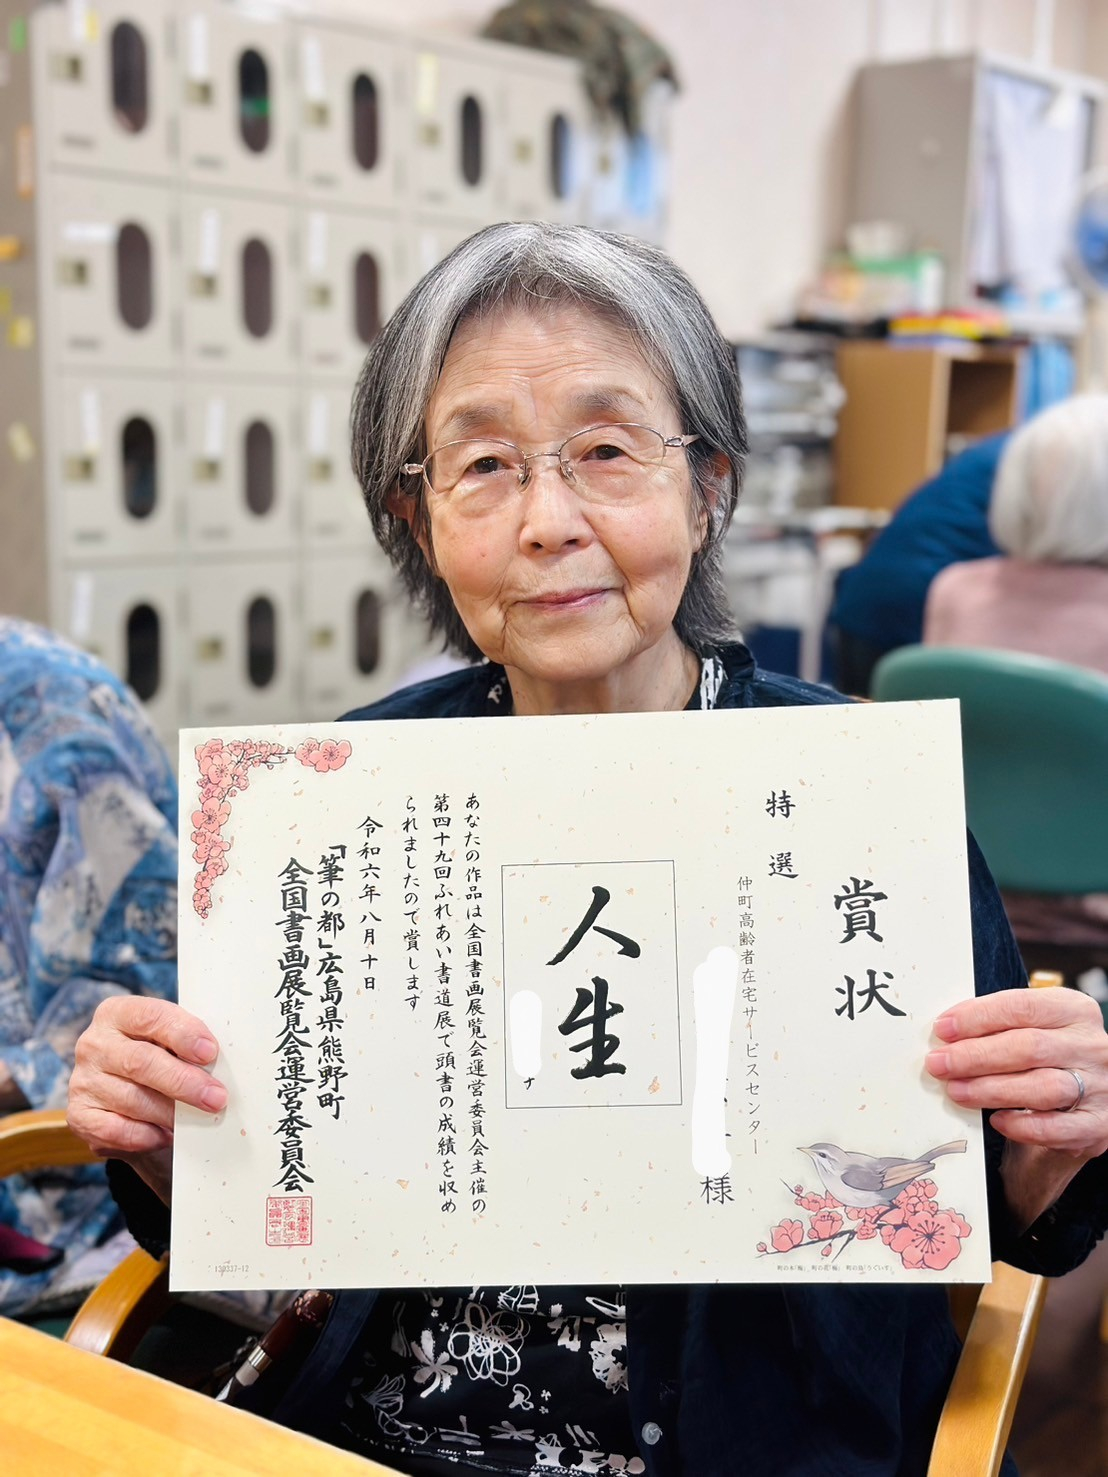 賞状
特選
仲町高齢者在宅サービスセンター
様
人生
あなたの作品は全国書画展覧会運営委員会主催の
第四十九回ふれあい書道展で頭書の成績を収め
られましたので賞します
令和六年八月十日
「筆の都」広島県熊野町
全国書画展覧会運営委員会
130337-12
町の木「梅」 町の花「梅」 町の鳥「うぐいす」